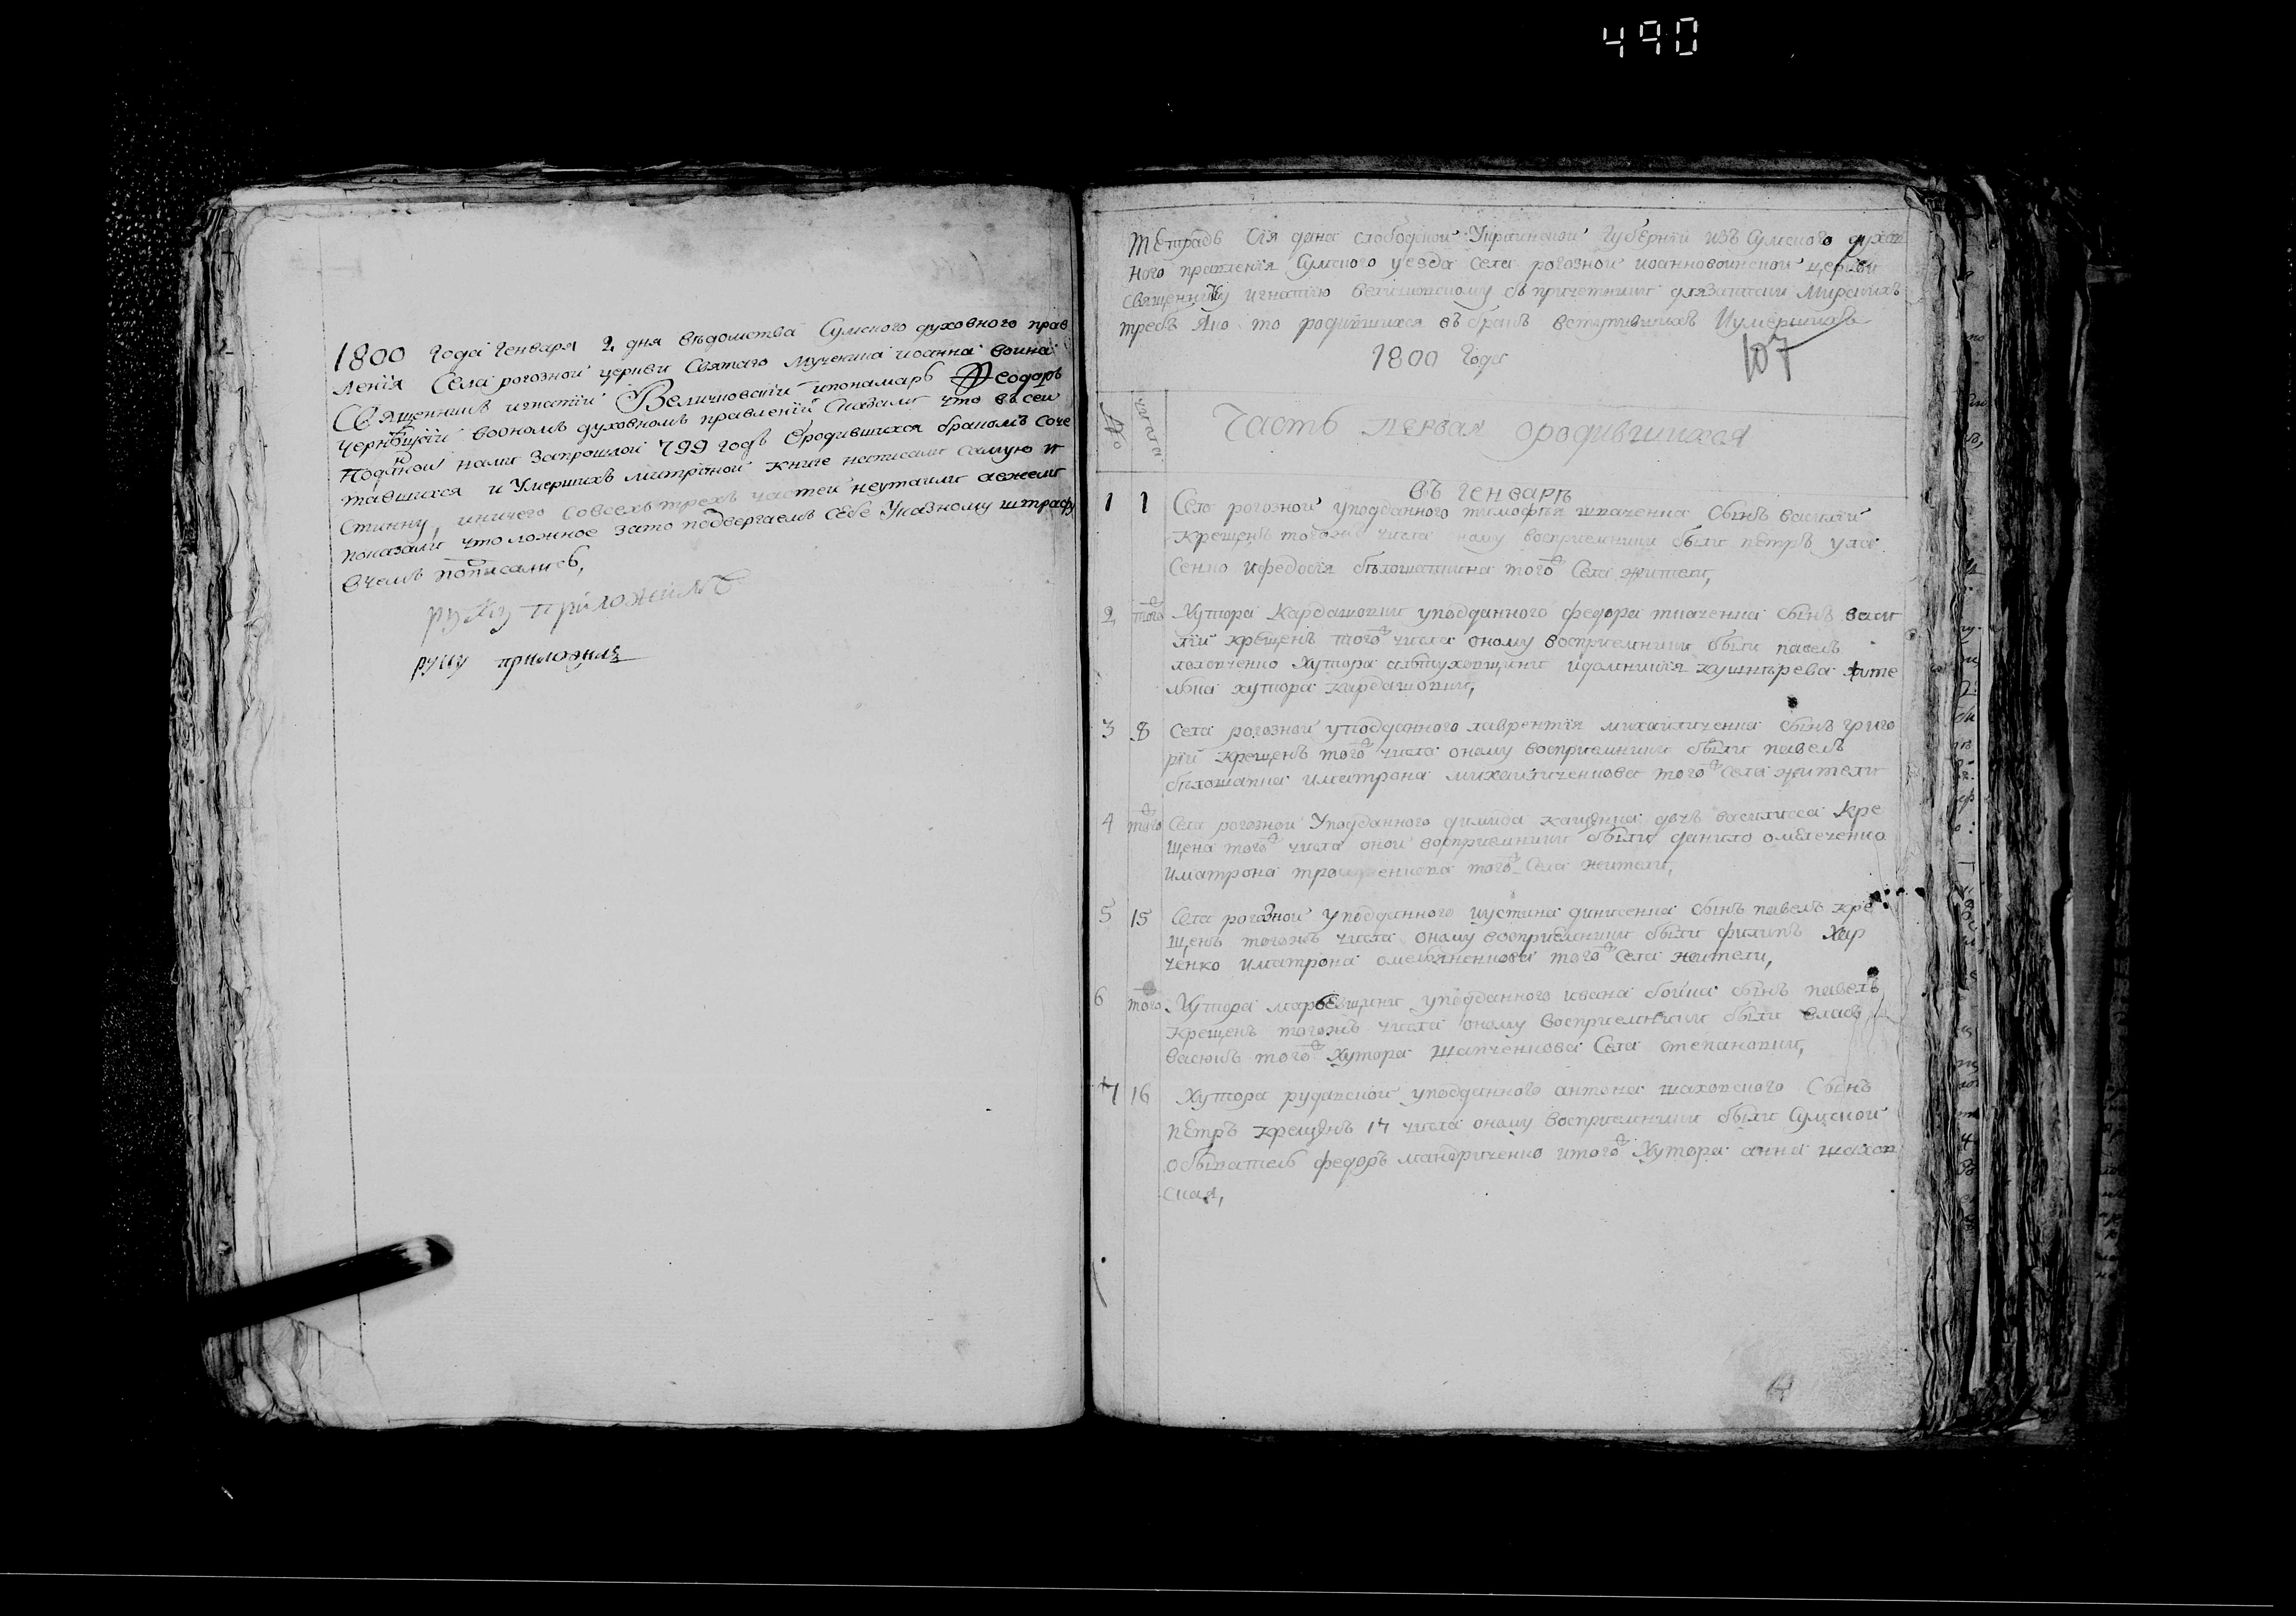 490
1800 Года Генваря 2 дня вѣдомства Сумского духовного прав
ленїя Села рогозной церкви Святаго мученика иоанна воина
Священникъ игнатїй Величковскїй ипонамарь Феодоръ
Черн цкїй воономъ духовномъ правленїи Сказали что въ сей
Поданой нами запрошлой 799 годъ Ородившихся бракомъ соче
тавшихся и Умершихъ митрачной книге написали самую и
стинну, иничего совсехъ трехъ частей неутаили аежели
показали что ложное зато подвергаемъ себе Указному штрафу
вчемъ подписались,
руку приложилъ
руку приложилъ
Тетрадь Сїя дана слободской Украинской Губернїи изъ Сумского духов
ного правленїя Сумского уезда села рогозной иоанновоинской церкви
священнику игнатїю величковскому съ причетники длязаписки Мирскихъ
требъ Яко то родившихся въ бракъ вступившихъ Иумершихъ
1800 Года
107
№ числа
Часть первая ородившихся
въ Генварѣ
1 1 Села рогозной уподданного тимофея шпаченка Сынъ василїй
крещенъ тогожъ числа оному восприемники были петръ ула
сенко ифедосїя бѣлошапкина того ж Села жители,
2 того ж Хутора Кардашовки уподданного федора ткаченка сынъ васи
лїй крещенъ того ж числа оному восприемники были павелъ
хутора идомникїя кушнѣрева жите
лька хутора кардашовки,
3 8 Села рогозной уподданного лаврентїя михайличенка сынъ григо
рїй крещенъ того ж числа оному восприемники были павелъ
бѣлошапка иматрона михайличенкова того ж села жители
4 того ж Села рогозной Уподданного димида кащенка дочь василиса Кре
щена того ж числа оной восприемники были данило омелеченко
иматрона того ж Села жители,
5 15 Села рогозной уподданного иустина динисенка сынъ павелъ кре
щенъ тогожъ числа оному восприемники были филипъ Хар
ченко иматрона омельяненкова того ж Села жители,
6 того ж Хутора марьевщини уподданного ивана бойка сынъ павелъ
крещенъ тогожъ числа оному восприемники были власъ
васюкъ того ж хутора Шапченкова Села степановки,
7 16 Хутора рудавской уподданного антона шаховского Сынъ
петръ крещенъ 17 числа оному восприемники были Сумской
обыватель федоръ мандриченко итого ж Хутора анна шахов
ская,